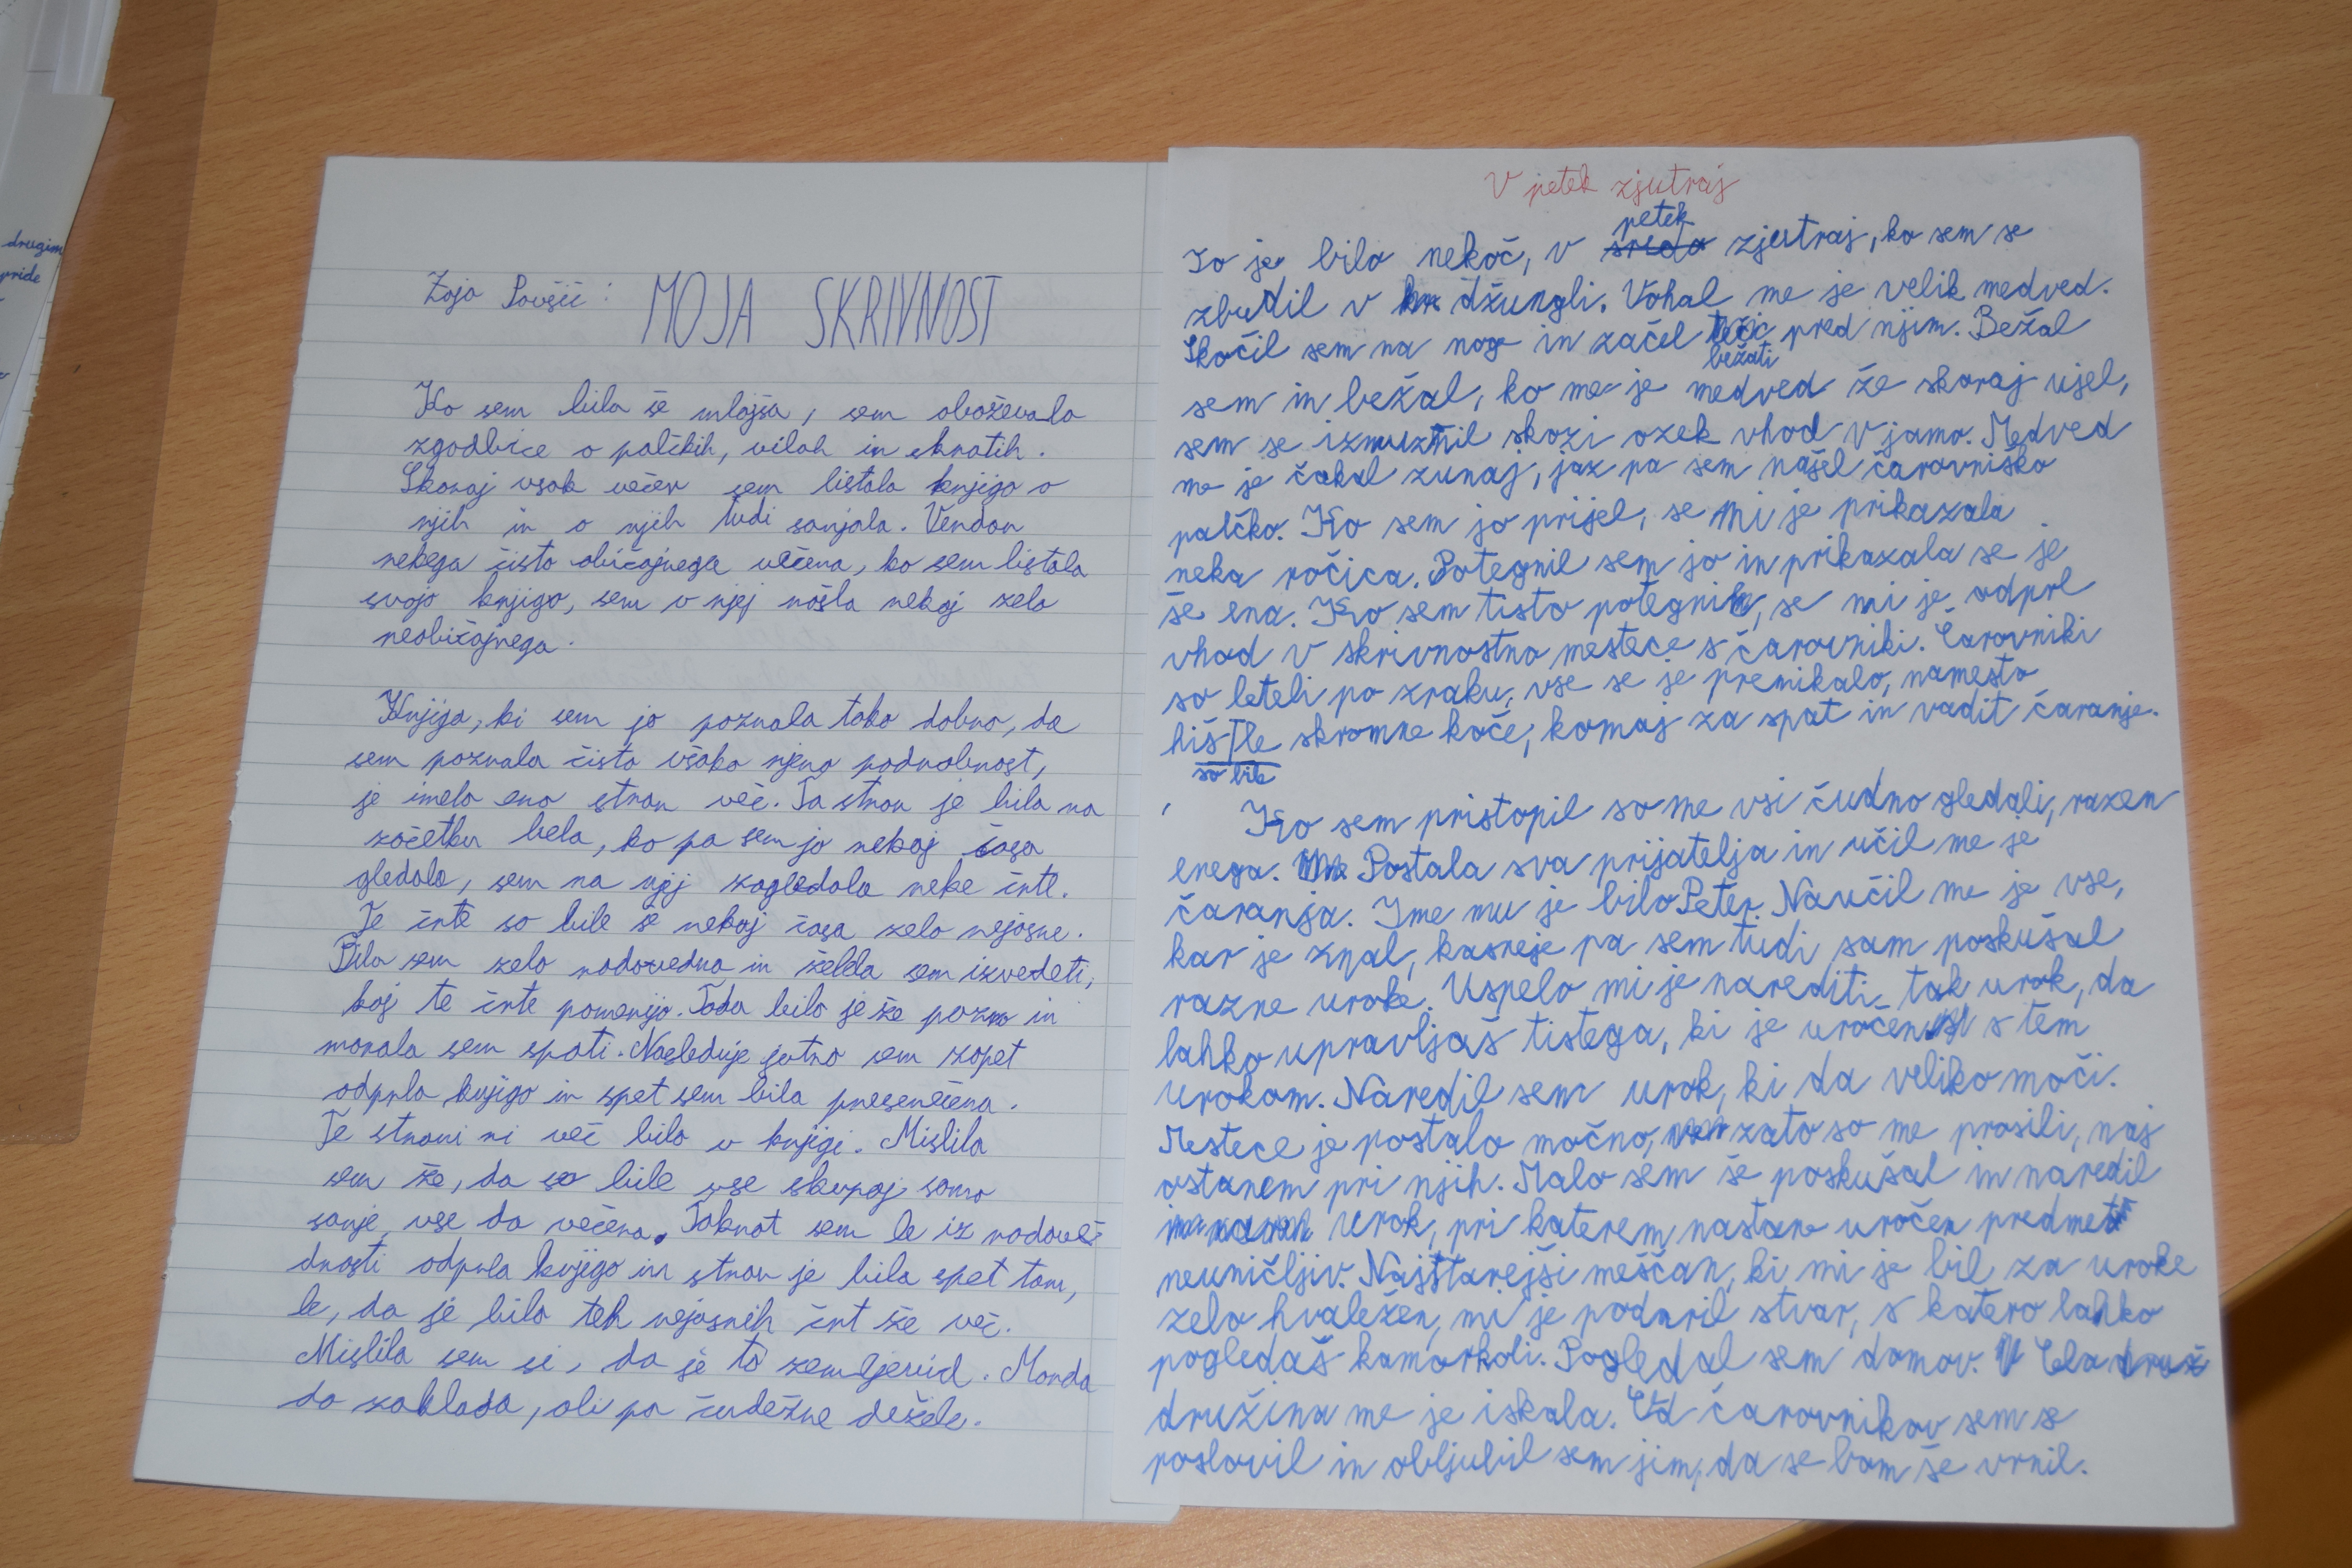 drugim
pride
Zoja Povšič: MOJA SKRIVNOST
Ko sem bila še mlajša, sem oboževala
zgodbice o palčkih, vilah in škratih.
Skoraj vsak večer sem listala knjigo o
njih in o njih tudi sanjala. Vendar
nekega čisto običajnega večera, ko sem listala
svojo knjigo, sem v njej našla nekaj zelo
neobičajnega.
Knjiga, ki sem jo poznala tako dobro, da
sem poznala čisto vsako njeno podrobnost,
je imela eno stran več. Ta stran je bila na
začetku bela, ko pa sem jo nekaj časa
gledala, sem na njej zagledala neke črte.
Te črte so bile še nekaj časa zelo nejasne.
Bila sem zelo radovedna in želela sem izvedeti,
kaj te črte pomenijo. Toda bilo je že pozno in
morala sem spati. Naslednje jutro sem zopet
odprla knjigo in spet sem bila presenečena.
Te strani ni več bilo v knjigi. Mislila
sem že, da so bile vse skupaj samo
sanje, vse do večera. Takrat sem le iz radove-
dnosti odprla knjigo in stran je bila spet tam,
le, da je bilo teh nejasnih črt že več.
Mislila sem si, da je to zemljevid. Morda
do zaklada, ali pa čudežne dežele.
V petek zjutraj
petek
To je bilo nekoč, v sreda zjutraj, ko sem se
zbudil v džungli. Vohal me je velik medved.
Skočil sem na noge in začel teči pred njim. Bežal
bežati
sem in bežal, ko me je medved že skoraj ujel,
sem se izmuznil skozi ozek vhod v jamo. Medved
me je čakal zunaj, jaz pa sem našel čarovniško
palčko. Ko sem jo prijel, se mi je prikazala
neka ročica. Potegnil sem jo in prikazala se je
še ena. Ko sem tisto potegnil, se mi je odprl
vhod v skrivnostno mestece s čarovniki. Čarovniki
so leteli po zraku, vse se je premikalo, namesto
hiš le skromne koče, komaj za spat in vadit čaranje.
so bile
Ko sem pristopil so me vsi čudno gledali, razen
enega. Postala sva prijatelja in učil me je
čaranja. Ime mu je bilo Peter. Naučil me je vse,
kar je znal, kasneje pa sem tudi sam poskušal
razne uroke. Uspelo mi je narediti tak urok, da
lahko upravljaš tistega, ki je uročen s tem
urokom. Naredil sem urok, ki da veliko moči.
Mestece je postalo močno, zato so me prosili, naj
ostanem pri njih. Malo sem še poskušal in naredil
urok, pri katerem nastane uročen predmet
neuničljiv. Najstarejši meščan, ki mi je bil za uroke
zelo hvaležen, mi je podaril stvar, s katero lahko
pogledaš kamorkoli. Pogledal sem domov. Cela druž
družina me je iskala. Od čarovnikov sem se
poslovil in obljubil sem jim, da se bom še vrnil.